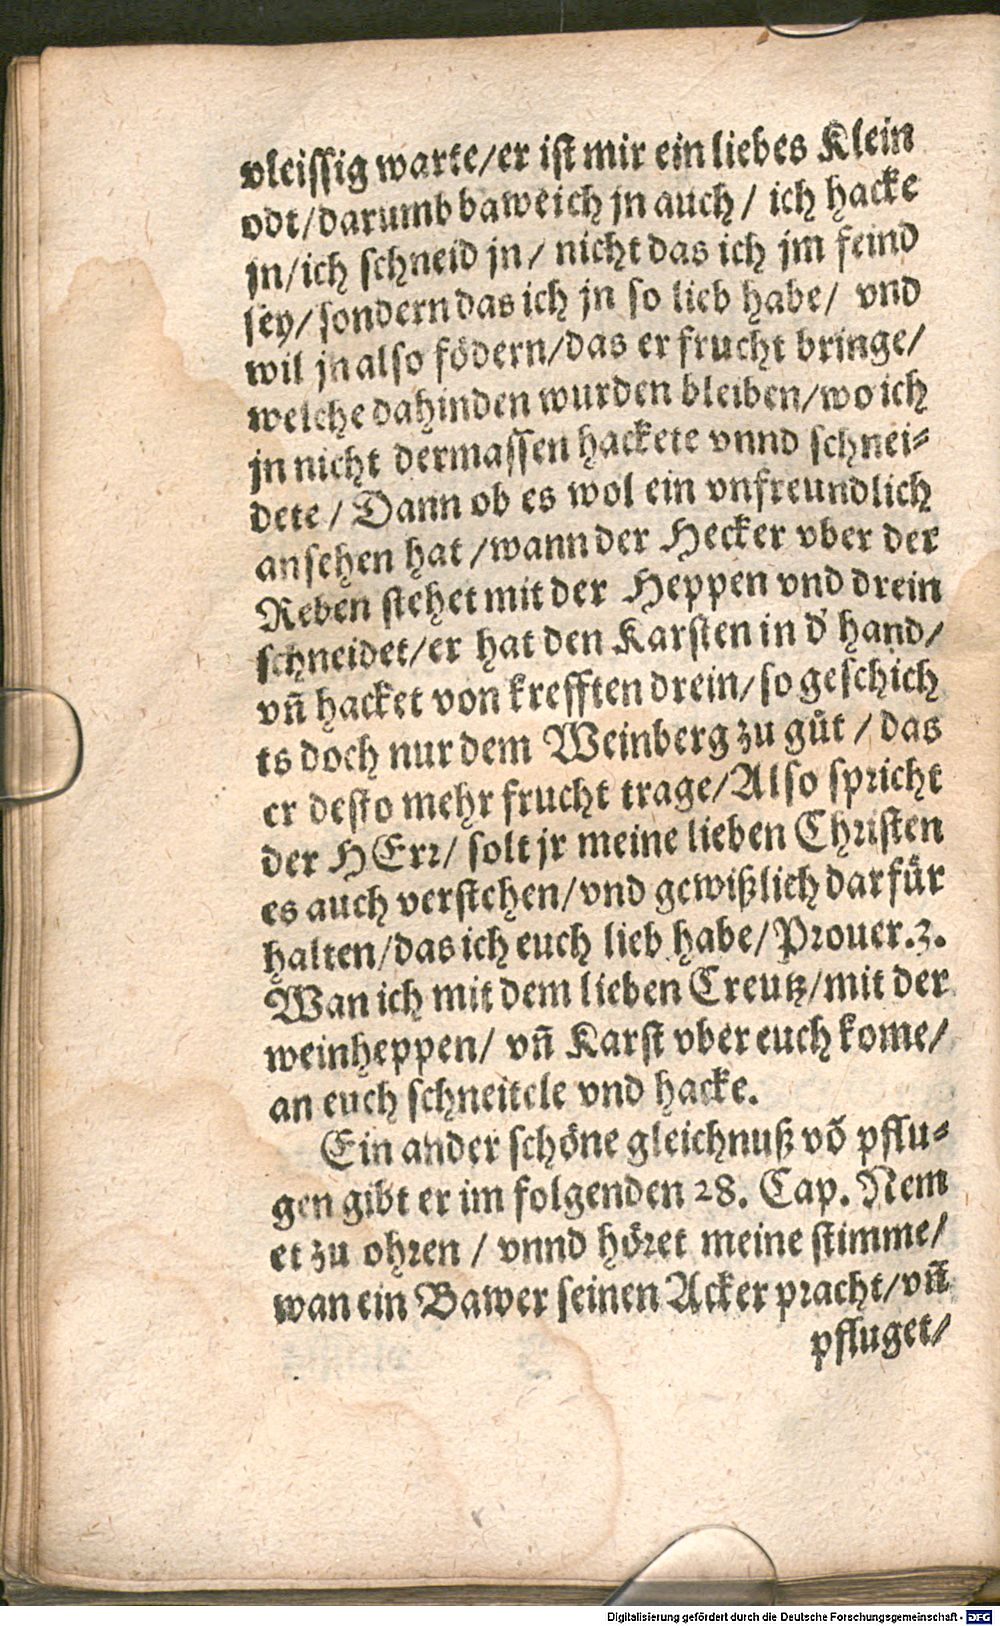 vleissig warte/er ist mir ein liebes Klein
odt/darumb baweich jn auch/ ich hacke
jn/ich schneid jn/ nicht das ich jm feind
sey/sondern das ich jn so lieb habe/ vnd
wil jn also födern/das er frucht bringe/
welche dahinden wurden bleiben/wo ich
jn nicht dermassen hackete vnnd schnei⸗
dete/Dann ob es wol ein vnfreundlich
ansehen hat/wann der Hecker vber der
Reben stehet mit der Heppen vnd drein
schneidet/er hat den Karsten in d' hand/
vñ hacket von krefften drein/so geschich
ts doch nur dem Weinberg zu gůt/das
er desto mehr frucht trage/Also spricht
der HErr/ solt jr meine lieben Christen
es auch verstehen/vnd gewißlich darfür
halten/das ich euch lieb habe/Prouer.3.
Wan ich mit dem lieben Creutz/mit der
weinheppen/ vñ Karst vber euch kome/
an euch schneitele vnd hacke.
Ein ander schöne gleichnuß võ pflu⸗
gen gibt er im folgenden 28. Cap. Nem
et zu ohren/ vnnd höret meine stimme/
wan ein Bawer seinen Acker pracht/vñ
pfluget/
Digitalisierung gefördert durch die Deutsche Forschungsgemeinschaft - DFG